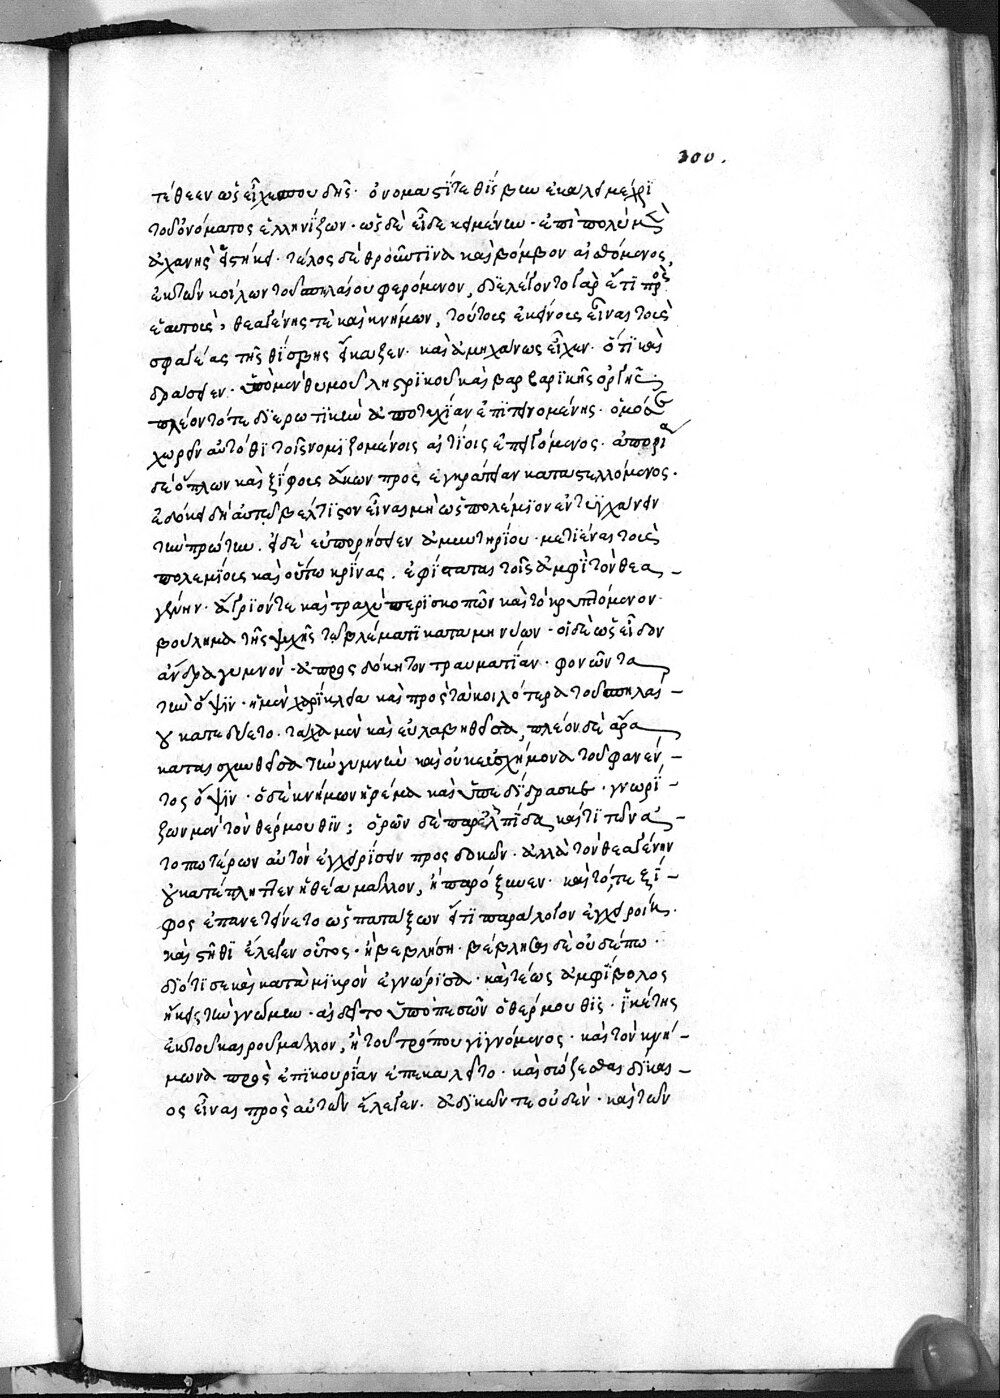 300.
τέθεεν ὡς εἶχε σπουδῆς· ὀνομαστί τε θίσβην ἐκάλει μέχρι
τοῦ ὀνόματος ἑλληνίζων· ὡς δὲ εἶδε κειμένην· ἐπὶ πολὺ μὲν
ἀχανὴς εἱστήκει· τέλος δὲ θροῦν τινα καὶ βόμβον αἰσθόμενος,
ἐκ τῶν κοίλων τοῦ σπηλαίου φερόμενον, διελέγοντο γὰρ ἔτι πρὸς
ἑαυτοὺς, θεαγένης τὲ καὶ κνήμων, τούτους ἐκείνους εἶναι τοὺς
σφαγέας τῆς θίσβης εἴκαζεν· καὶ ἀμηχάνως εἶχεν· ὅτι καὶ
δράσειεν· ὑπὸ μὲν θυμοῦ ληστρικοῦ καὶ βαρβαρικῆς ὀργῆς·
πλέον τότε δι' ἐρωτικὴν ἀποτυχίαν ἐπιτεινομένης· ὁμόσε
χωρεῖν αὐτόθι τοῖς νομιζομένοις αἰτίοις ἐπειγόμενος· ἀπορίᾳ
δὲ ὅπλων καὶ ξίφους ἄκων πρὸς ἐγκράτειαν καταστελλόμενος·
ἐδόκει δὴ αὐτῷ βέλτιστον εἶναι μὴ ὡς πολέμιον ἐντυγχάνειν
τὴν πρώτην. εἰ δὲ εὐπορήσειεν ἀμυντηρίου· μετιέναι τοὺς
πολεμίους καὶ οὕτω κρίνας. ἐφίσταται τοῖς ἀμφὶ τὸν θεα-
γένην· ἄγριόν τε καὶ τραχὺ περισκοπῶν καὶ τὸ κρυπτόμενον
βούλημα τῆς ψυχῆς τῷ βλέμματι καταμηνύων· οἱ δὲ ὡς εἶδον
ἄνδρα γυμνὸν· ἀπροσδόκητον τραυματίαν· φονῶντα
τὴν ὄψιν· ἡ μὲν χαρίκλεια καὶ πρὸς τὰ κοιλότερα τοῦ σπηλαί-
ου κατεδύετο· τάχα μὲν καὶ εὐλαβηθεῖσα, πλέον δὲ ἄρα
καταισχυνθεῖσα τὴν γυμνὴν καὶ οὐκ εὐσχήμονα τοῦ φανέν-
τος ὄψιν· ὁ δὲ κνήμων ἠρέμα καὶ ὑπεδίδρασκε· γνωρί-
ζων μὲν τὸν θέρμουθιν; ὁρῶν δὲ παρ' ἐλπίδα, καί τι τῶν ἀ-
τοπωτέρων αὐτὸν ἐγχειρίσειν προσδοκῶν· ἀλλὰ τὸν θεαγένην
οὐ κατέπληττεν ἡ θέα μᾶλλον, ἢ παρόξυνεν· καὶ τό, τε ξί-
φος ἐπανετείνετο ὡς παταίξων εἴ τι παράλογον ἐγχειροίη·
καὶ στῆθι ἔλεγεν οὗτος· ἢ βεβλήσῃ· βέβλησαι δὲ οὐδέπω·
διότι σε καὶ κατὰ μικρὸν ἐγνώρισα· καὶ τέως ἀμφίβολος
ἥκεις τὴν γνώμην· ἐδεῖτο ὑποπεσὼν ὁ θέρμουθις· ἱκέτης
ἐκ τοῦ καιροῦ μᾶλλον, ἢ τοῦ τρόπου γιγνόμενος· καὶ τὸν κνή-
μωνα πρὸς ἐπικουρίαν ἐπεκαλεῖτο· καὶ σώζεσθαι δίκαι-
ος εἶναι πρὸς αὐτῶν ἔλεγεν· ἀδικῶν τε οὐδὲν· καὶ τῶν